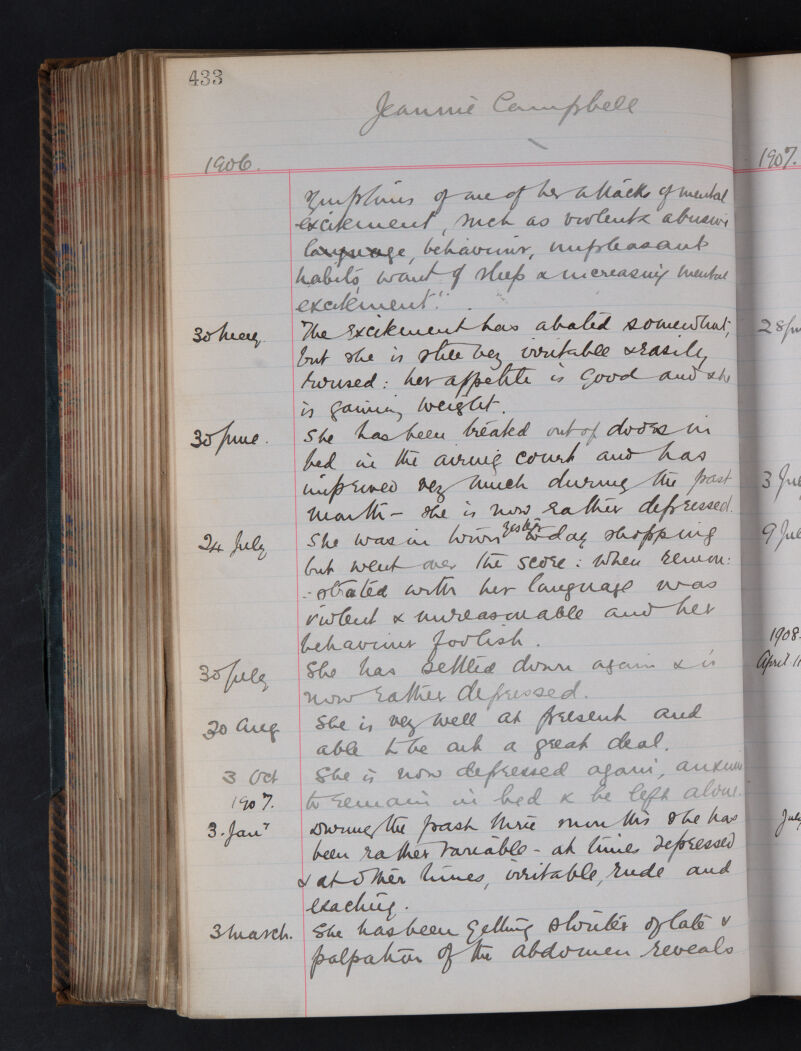 433
Jeannie Campbell
1906.
1907.
symptoms of one of her attacks of mental
excitement, such as violent & abusive
language, behaviour, unpleasant
habits, want of sleep & increasing mental
excitement".
30 May. The excitement has abated somewhat,
but she is still very irritable & easily
roused: her appetite is good and she
is gaining weight.
30 June. She has been treated out of doors in
bed in the airing court and has
improved very much during the past
month - she is now rather depressed.
24 July She was in town yester to day shopping
but went over the score: when remon:
:strated with her language was
violent & unreasonable and her
behaviour foolish.
30 July She has settled down again & is
now rather depressed.
30 Aug She is very well at present and
able to be out a great deal.
3 Oct She is now depressed again, anxious
to remain in bed & be left alone.
1907.
3. Jany During the past three months she has
been rather variable - at times depressed
& at other times, irritable, rude and
exacting.
3 March. She has been getting stouter of late &
palpation of the abdomen reveals
28
3
9
1908.
April 11
July